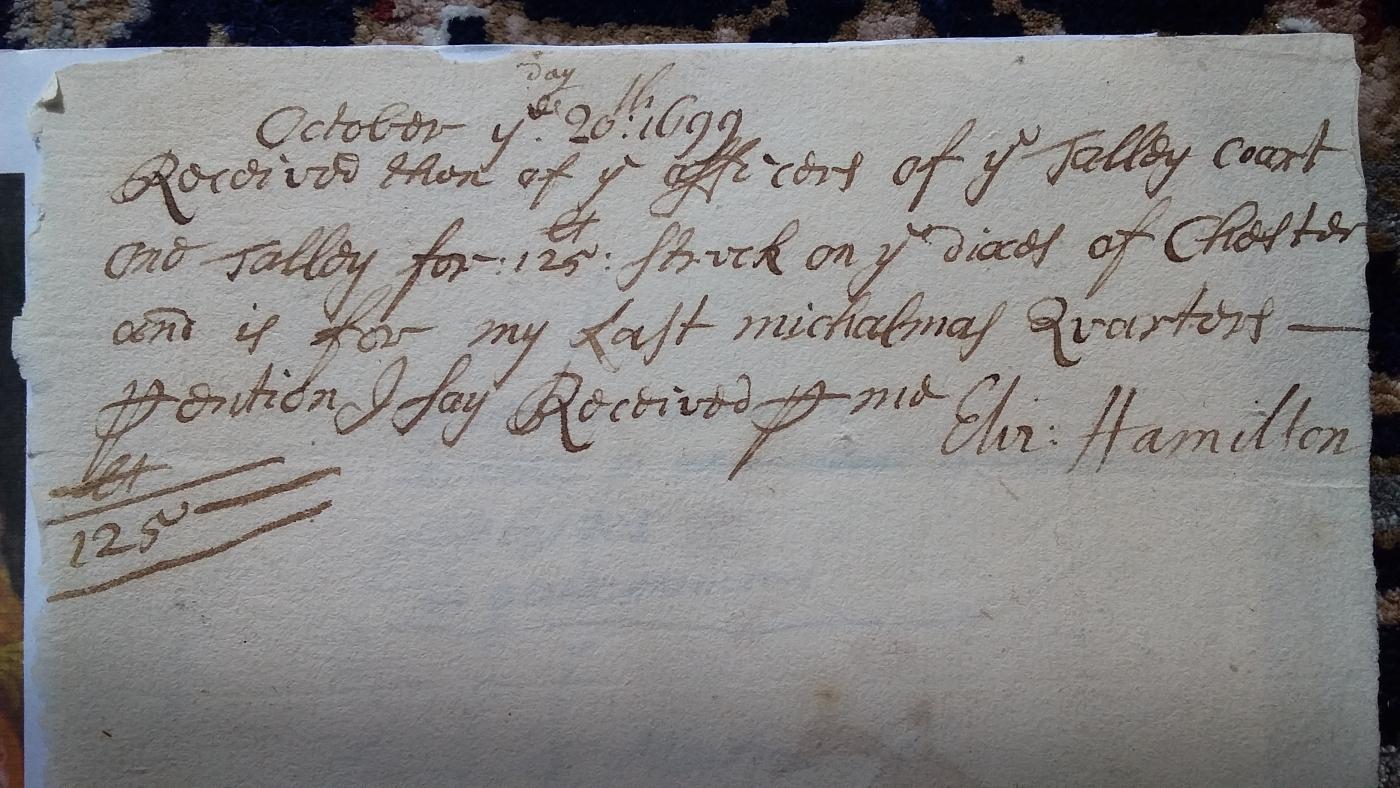 day
October ye. 20th: 1699
Received then of ye officers of ye Talley Coart
one Talley for: 125lt: struck on ye diaces of Chester
and is for my Last michalmas Quarters —
Pention I say Received P me Eliz: Hamilton
lt
125